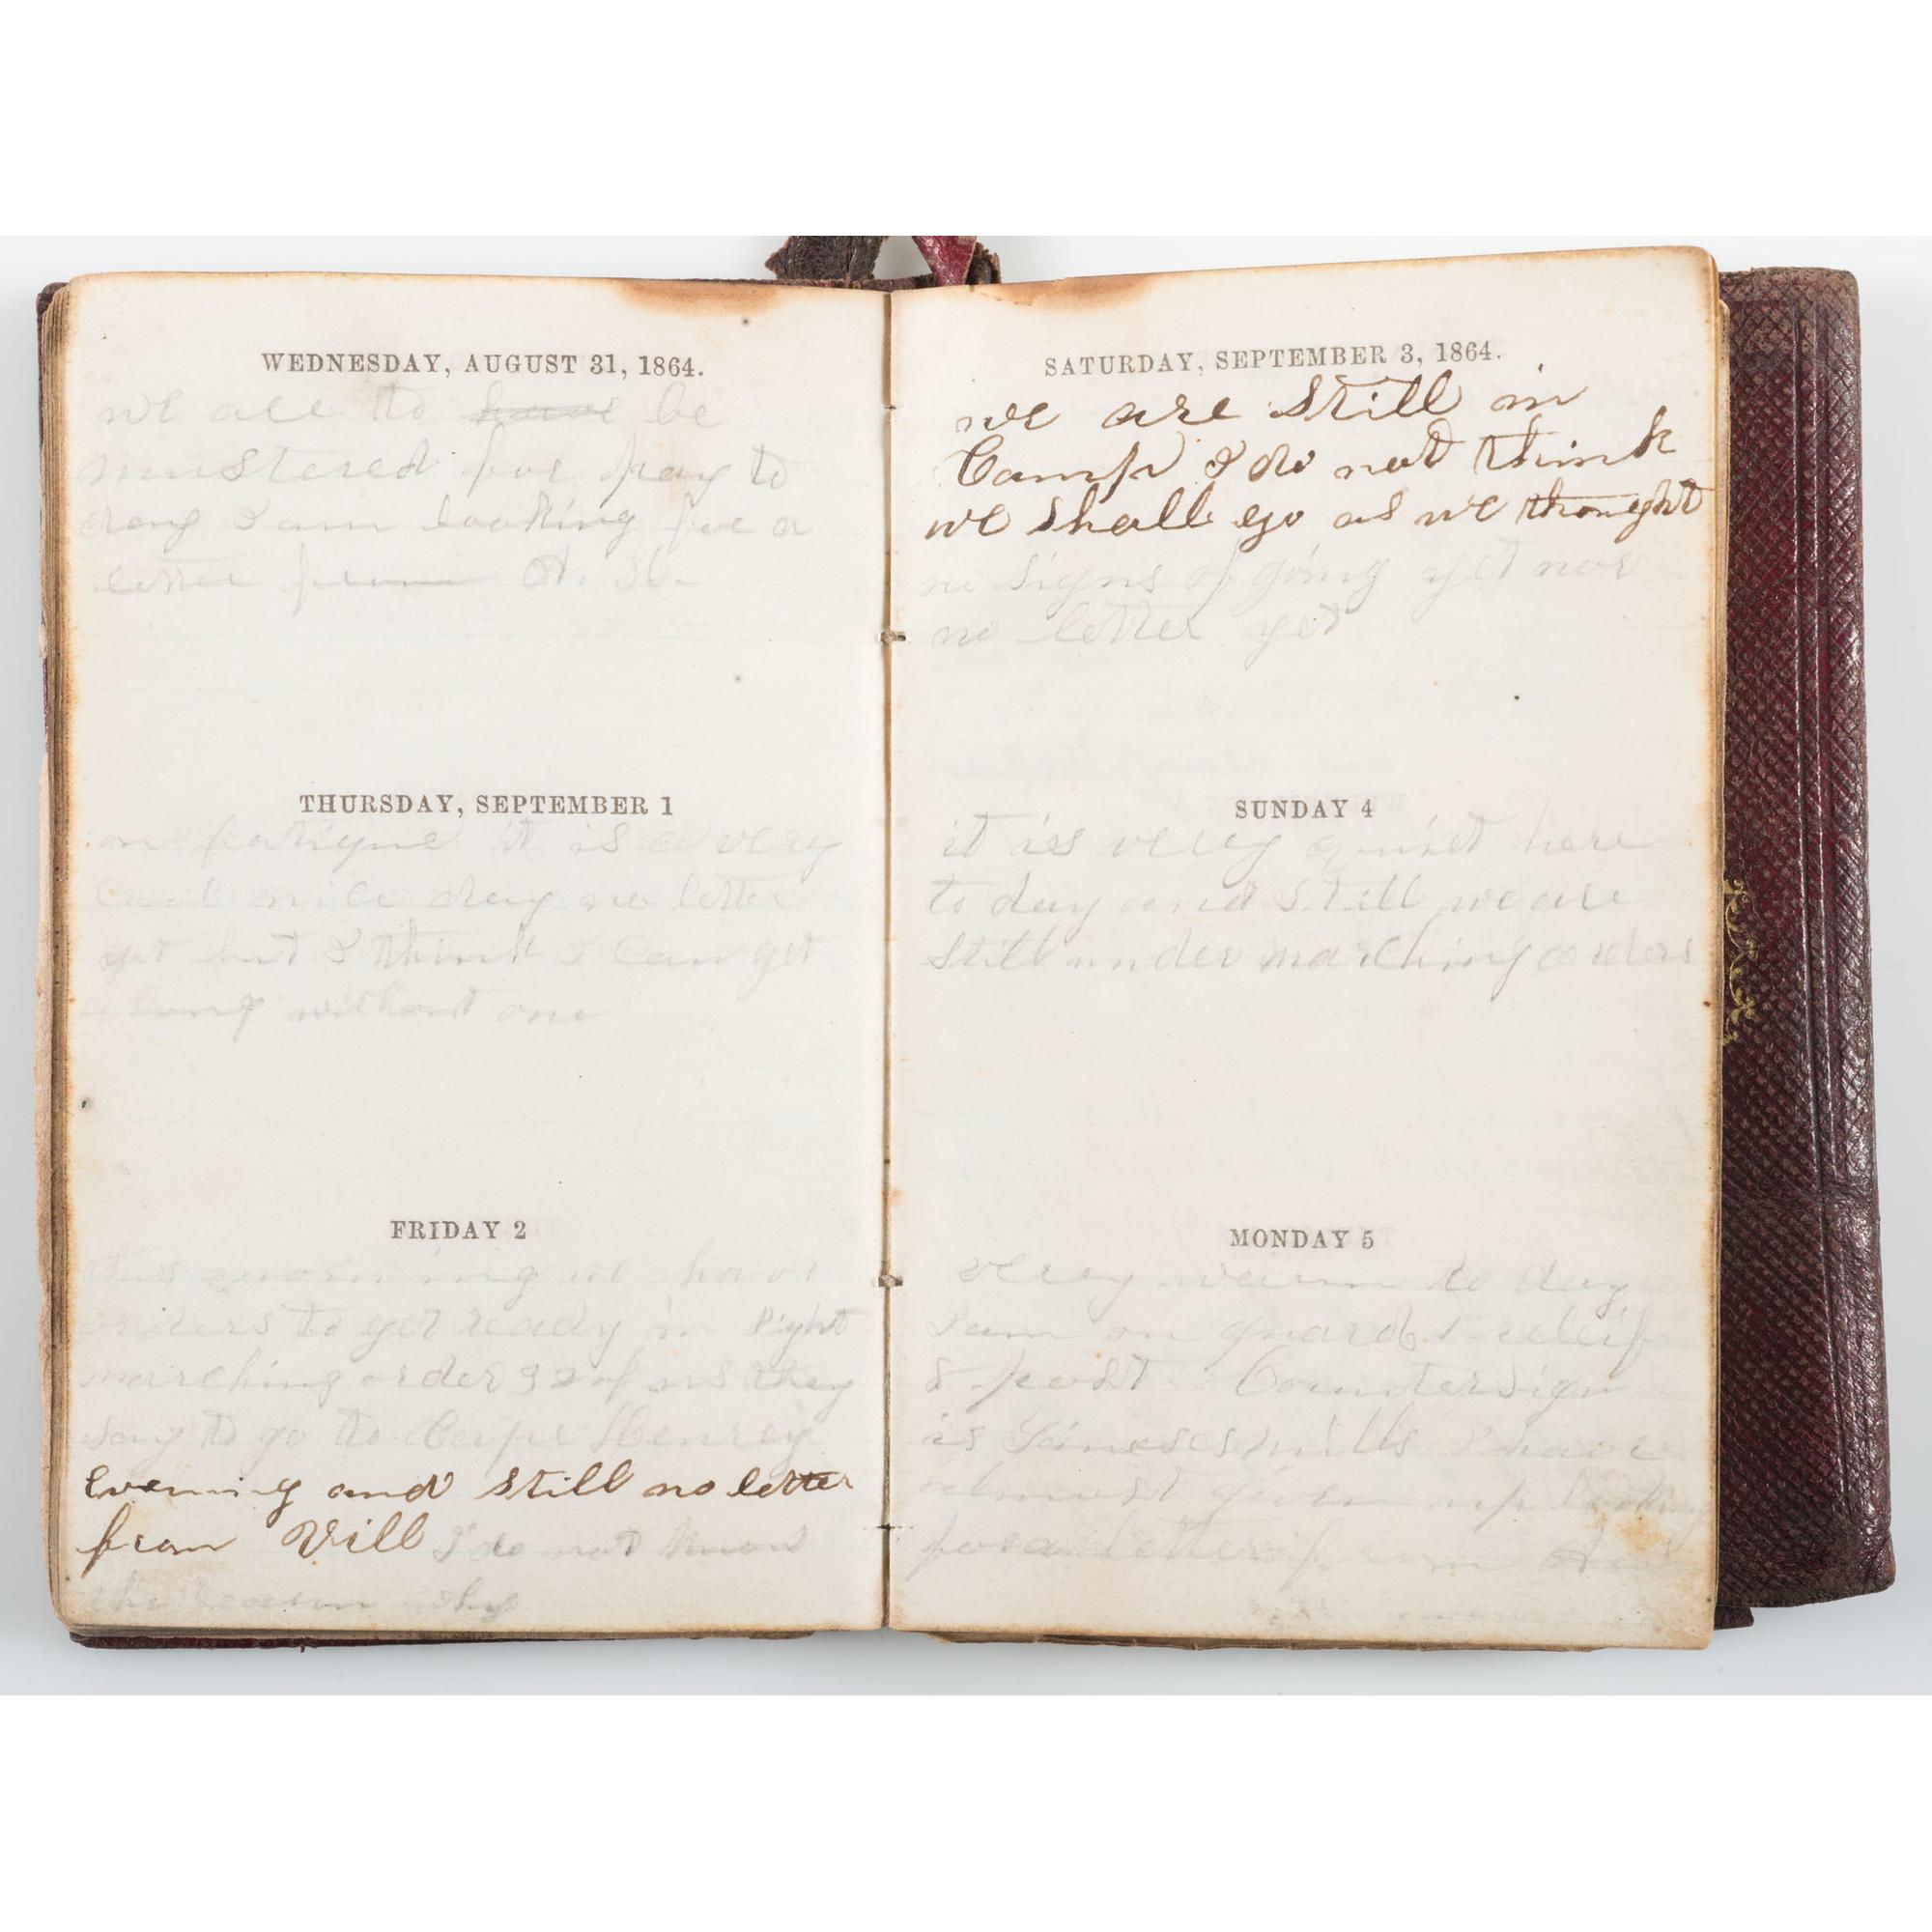 WEDNESDAY, AUGUST 31, 1864.
we are to have be
mustered for pay to
day I am looking for a
letter from
THURSDAY, SEPTEMBER 1
on fatigue it is a very
cool nice day no letter
yet but I think I can get
along without one
FRIDAY 2
this morning we have
orders to get ready in light
marching order 32 of us they
say to go to Cape Henrey
evening and still no letter
from Vill I do not know
the reason why
SATURDAY, SEPTEMBER 3, 1864.
we are still in
Camp I do not think
we shall go as we thought
no signs of going yet nor
no letter yet
SUNDAY 4
it is verey quiet here
to day and still we are
still under marching orders
MONDAY 5
verey warm to day
I am on guard 1 releif
8 post Countersign
is Gaineses mills I have
almost given up looking
for a letter from